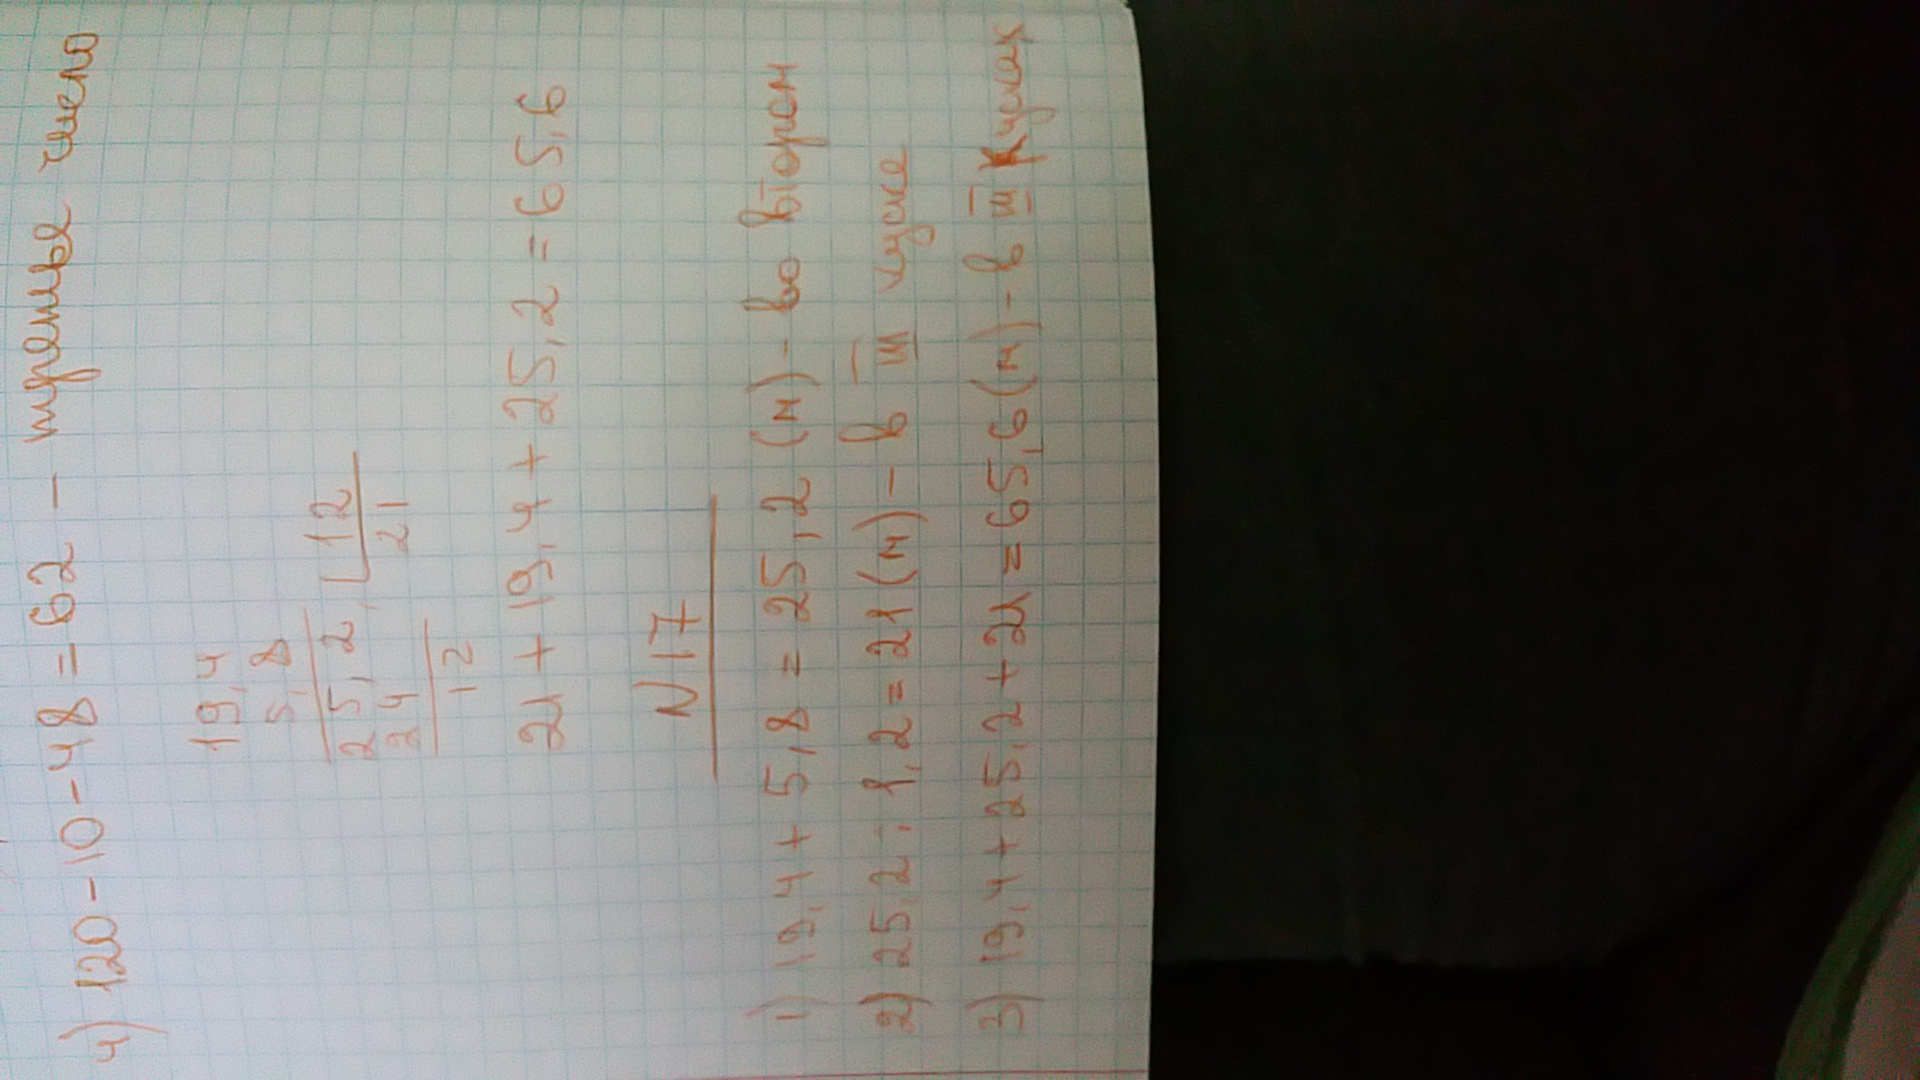 4) 120-10-48=62 - третье число
19,4
5,8
25,2 12
24 21
12
21+19,4+25,2=65,6
N17
1) 19,4+5,8=25,2 (м)- во втором
2) 25,2:1,2=21(м)- в III куске
3) 19,4+25,2+21=65,6(м)- в III кусках